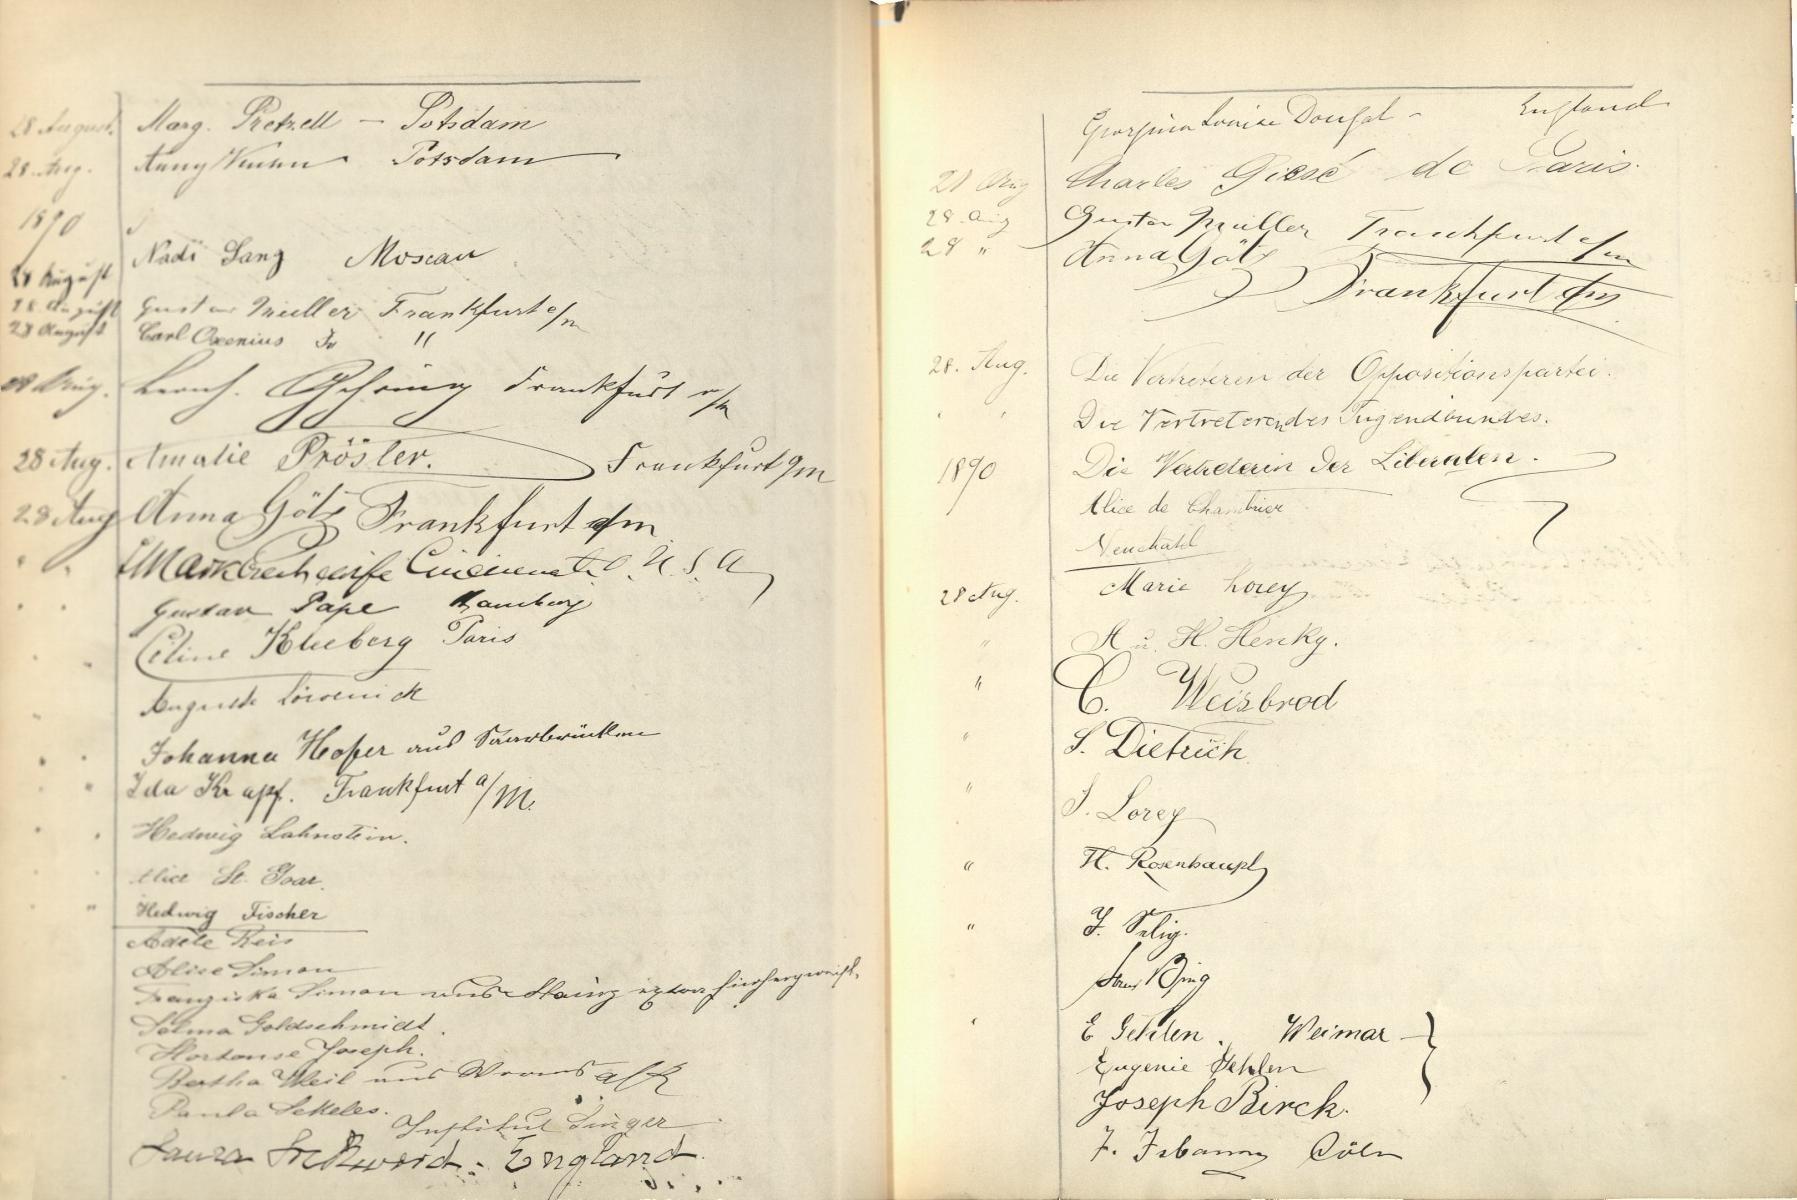 28 August. Marg. Pretzell — Potsdam
28. Aug. Anny Potsdam
1890
28 August Nadi Lang Moscau
28 August Gustav Müller Frankfurt a/m
28 August Carl Oxenius Jr "
28 Aug. Gehring Frankfurt a/m
28 Aug. Amalie Prösler. Frankfurt a/m
28 Aug Anna Götz Frankfurt a/m
" " Mark Cincinnati O. U. S. A
" " Gustav Pape Hamburg
Céline Kleeberg Paris
" " Auguste
" Johanna Hofer aus Saarbrücken
" " Ida Krapf. Frankfurt a/M.
" " Hedwig Lahnstein.
" " Alice St. Goar.
" " Hedwig Fischer
Adele Reis
Alice Simon
Franziska Simon aus Mainz extra
Selma Goldschmidt.
Hortense Joseph.
Bertha Weil aus Worms a/R
Paula Sekeles. Institut Singer
Laura - England.
Georgina Louise Dougal - England
28 Aug Charles Giesé de Paris.
28 Aug Gustav Müller Frankfurt a/m
28 " Anna Götz
Frankfurt a/m
28. Aug. Die Vertreterin der Oppositionspartei.
" " Die Vertreterin des Tugendbundes.
1890 Die Vertreterin der Liberalen.
Alice de Chambrier
Neuchatel
28 Aug. Marie Lorey
" A u. H. Henky.
" C. Weisbrod
" S. Dietrich
" J. Lorey
" H. Rosenhaupt
" J. Selig.
Bing
" E Gehlen. Weimar
Eugenie Gehlen
Joseph Birck.
Cöln